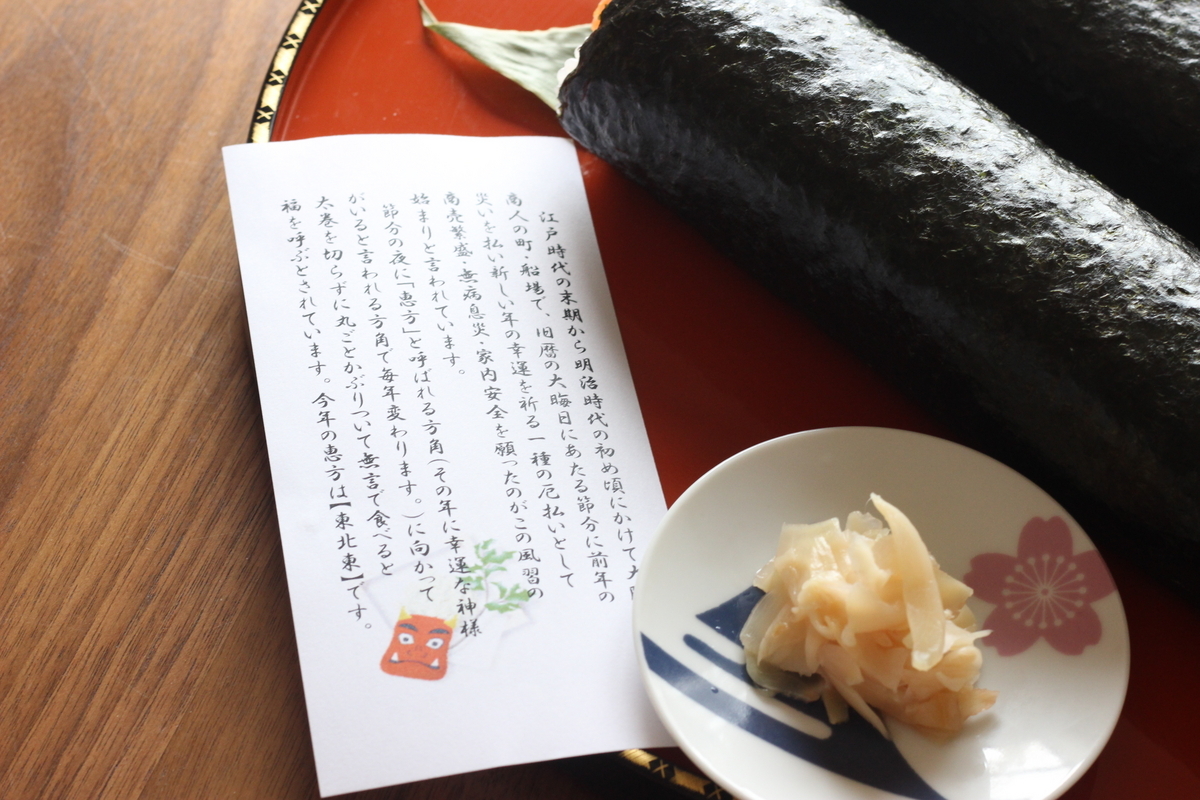 江戸時代の末期から明治時代の初め頃にかけて大
商人の町・船場で、旧暦の大晦日にあたる節分に前年の
災いを払い新しい年の幸運を祈る一種の厄払いとして
商売繁盛・無病息災・家内安全を願ったのがこの風習の
始まりと言われています。
節分の夜に「恵方」と呼ばれる方角(その年に幸運な神様
がいると言われる方角で毎年変わります。)に向かって
太巻を切らずに丸ごとかぶりついて無言で食べると
福を呼ぶとされています。今年の恵方は【東北東】です。